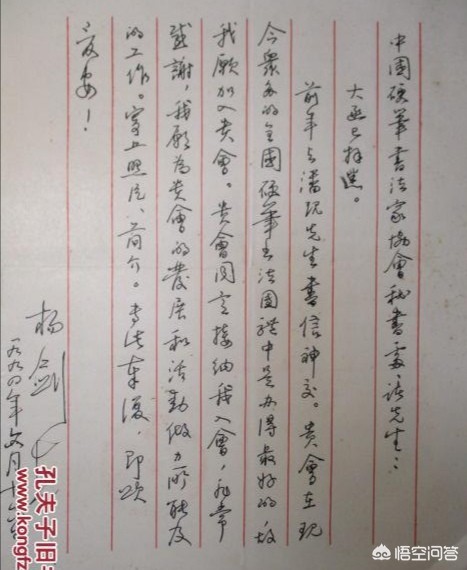 中國硬筆書法家協會秘書處、諸先生：
大函已拜讀。
前年與潘現先生書信神交。貴會在現
今眾多的全國硬筆書法團體中是办得最好的，故
我願加入貴會。貴會同意接納我入會，非常
感謝，我願為貴會的發展和活動做力所能及
的工作。寄上照片、簡介。專此奉復，即頌
夏安！
楊剑
一九九四年六月十
孔夫子旧书
www.kongfz
悟空问答